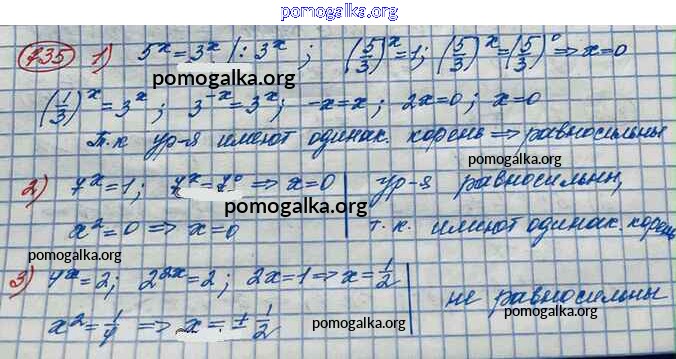 pomogalka.org
735 1) 5^x = 3^x |: 3^x ; (5/3)^x = 1; (5/3)^x = (5/3)^0 => x=0
pomogalka.org
(1/3)^x = 3^x ; 3^-x = 3^x; -x = x; 2x=0; x=0
Т.к ур-я имеют одинак. корень => равносильны
pomogalka.org
2) 7^x = 1; 7^x = 7^0 => x=0 | ур-я равносильны,
pomogalka.org
x^2 = 0 => x=0 | т.к. имеют одинак. корень
pomogalka.org
3) 4^x = 2; 2^2x = 2; 2x=1 => x = 1/2 | не равносильны
x^2 = 1/4 => x = ± 1/2
pomogalka.org pomogalka.org